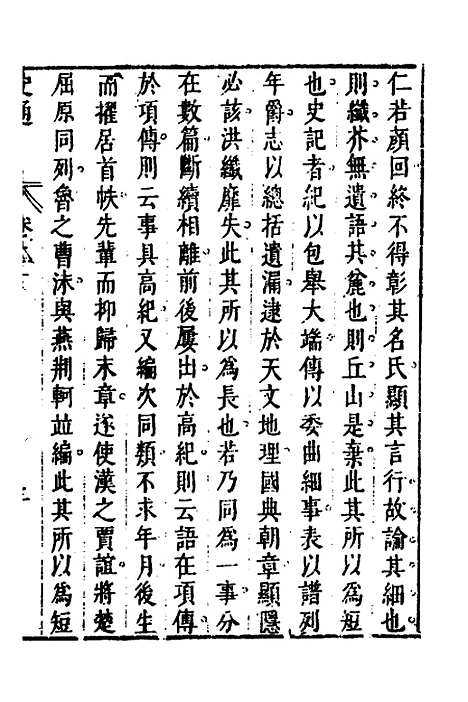 仁若顏回終不得彰其名氏顯其言行故論其細也
則纖芥無遺語其麄也則丘山是棄此其所以爲短
也史記者紀以包舉大端傳以委曲細事表以譜列
年爵志以總括遺漏逮於天文地理國典朝章顯隱
必該洪纖靡失此其所以爲長也若乃同爲一事分
在數篇斷續相離前後屢出於高紀則云語在項傳
於項傳則云事具高紀又編次同類不求年月後生
而擢居首帙先輩而抑歸末章遂使漢之賈誼將楚
屈原同列魯之曹沫與燕荆軻並編此其所以爲短
史通